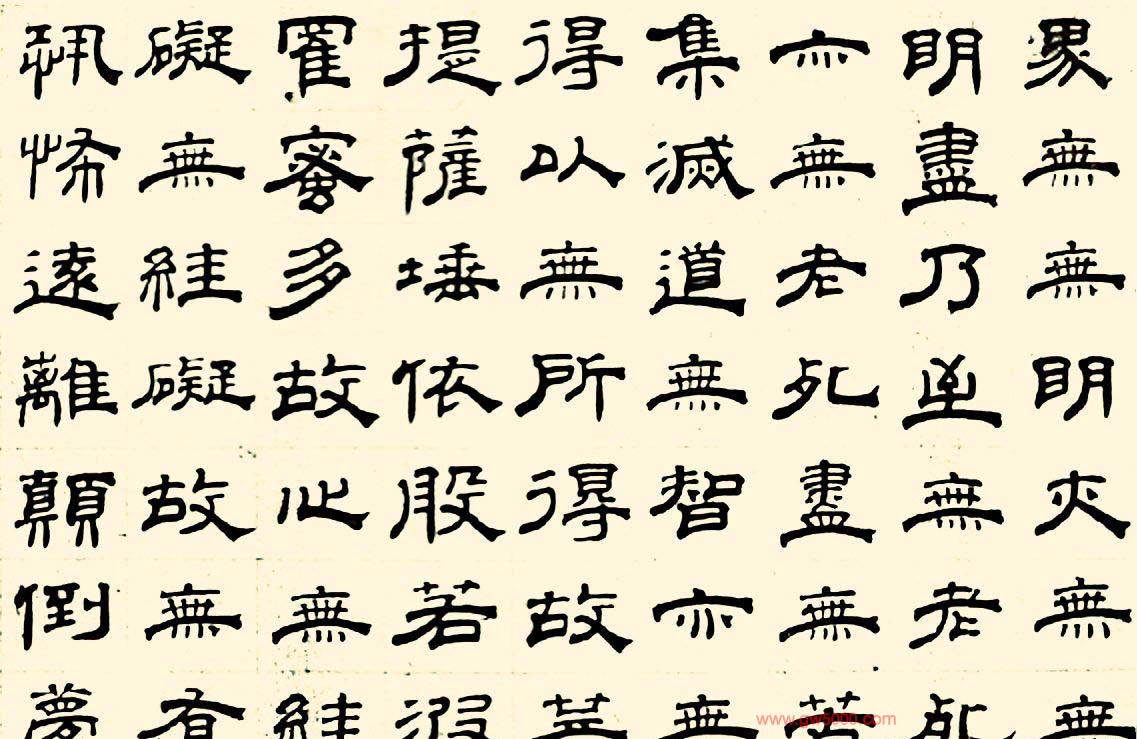 界無無明亦無無
明盡乃至無老死
亦無老死盡無苦
集滅道無智亦無
得以無所得故菩
提薩埵依般若波
羅蜜多故心無絓
礙無絓礙故無有
恐怖遠離顛倒夢
www.gw5000.com